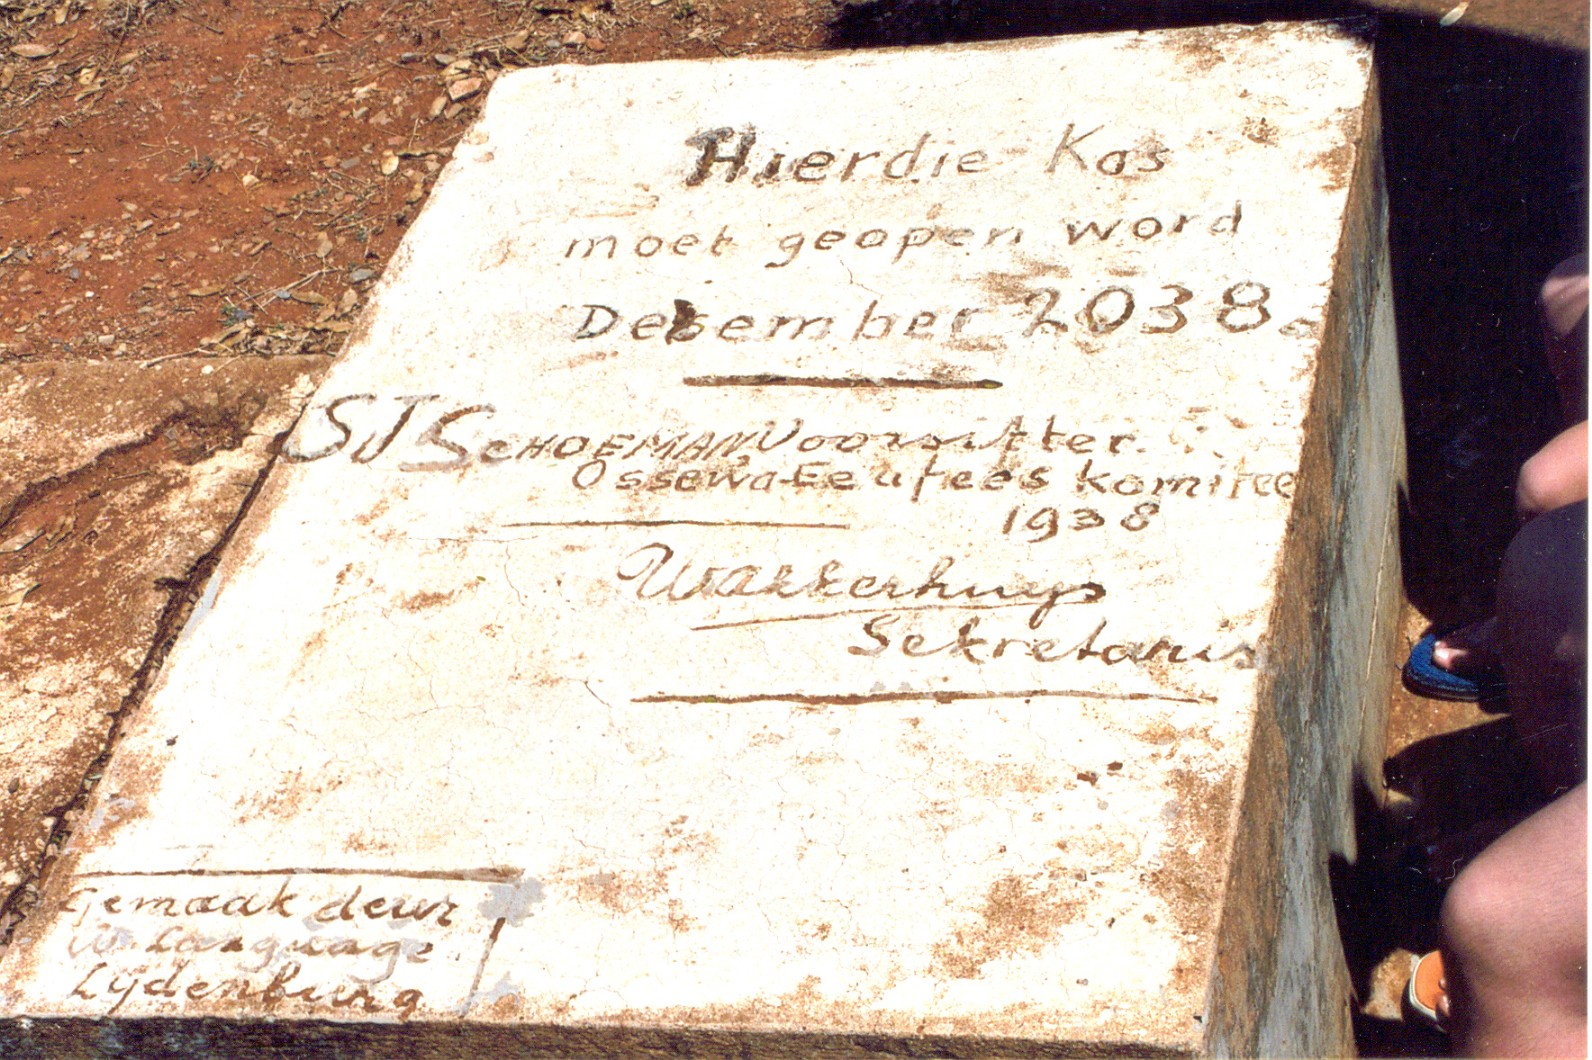 Hierdie Kas
moet geopen word
Desember 2038.
SJ SCHOEMAN, Voorsitter.
Ossewa-Eeufees komitee
1938
Wakkerhuys
Sekretaris
Gemaak deur
Lydenburg